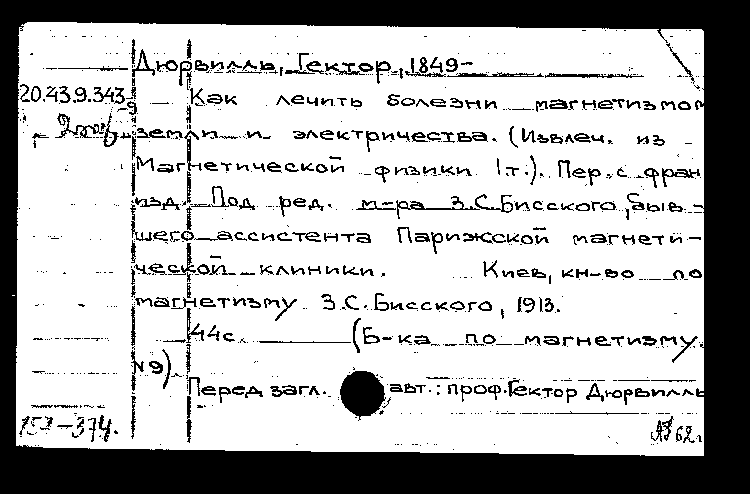 Дюрвилль, Гектор, 1849-
20.43.9.343
Как лечить болезни магнетизмом
земли и электричества. (Извлеч. из
Магнетической физики I т.). Пер. с фран
изд. Под ред. м-ра З.С.Бисского, быв-
шего ассистента Парижской магнети-
ческой клиники. Киев, кн-во по
магнетизму З.С.Бисского, 1913.
44с. (Б-ка по магнетизму.
№9)
Перед загл. авт.: проф.Гектор Дюрвилль
157-374.
62г